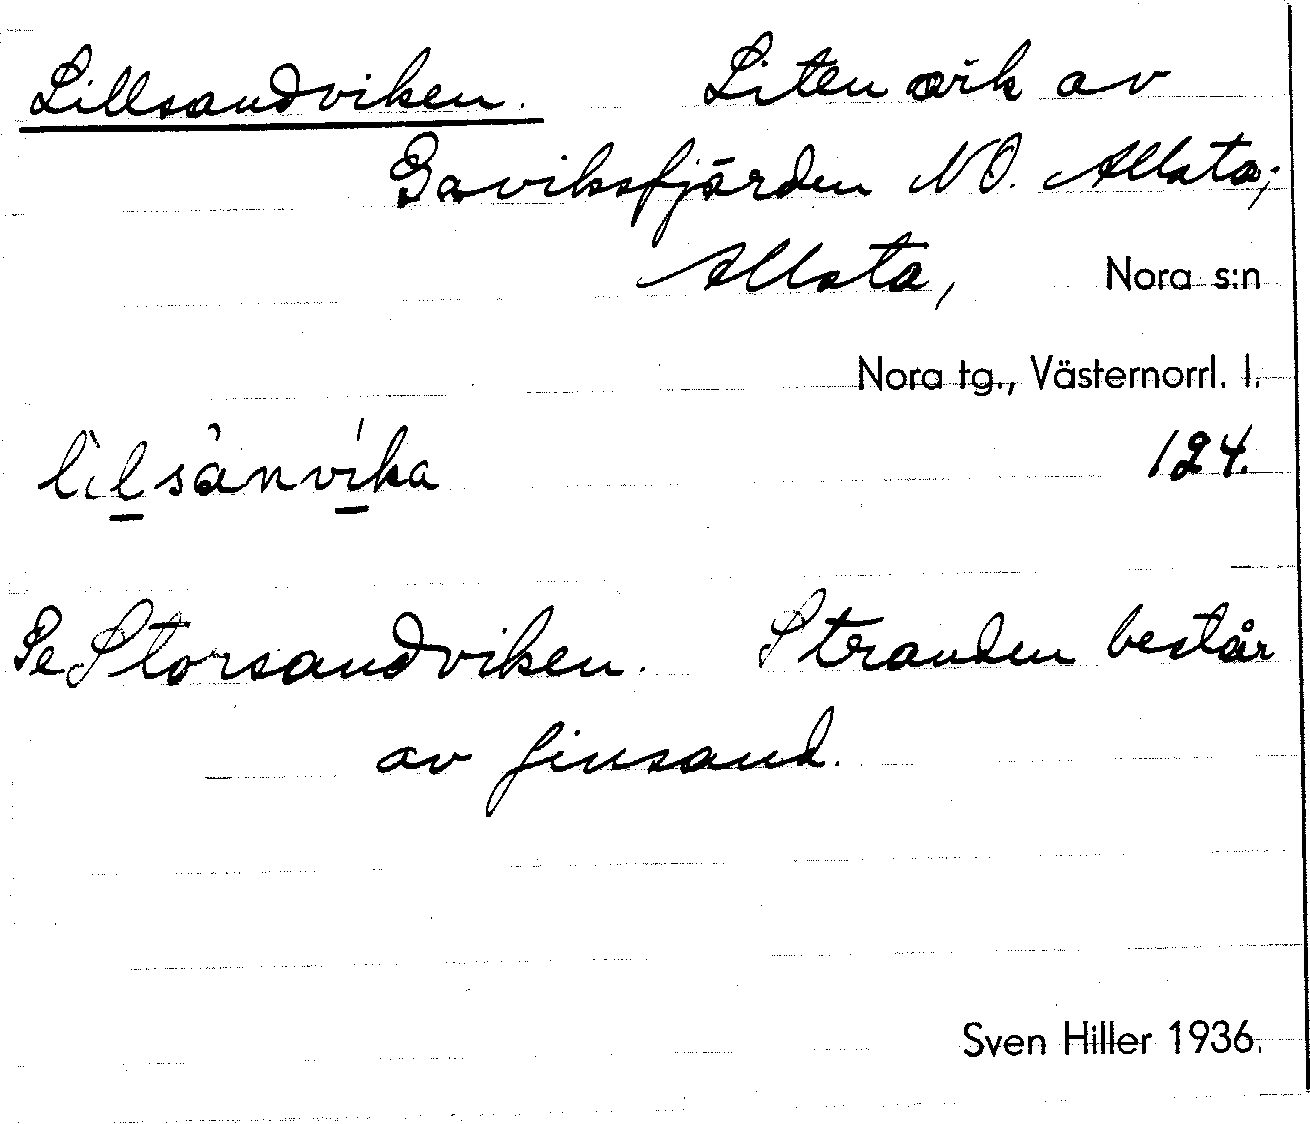 Lillsandviken. Liten vik av
Gaviksfjärden NO. Allsta;
Allsta, Nora s:n
Nora tg., Västernorrl. l.
lìlsànvíka 124.
Se Storsandviken. Stranden består
av finsand.
Sven Hiller 1936.